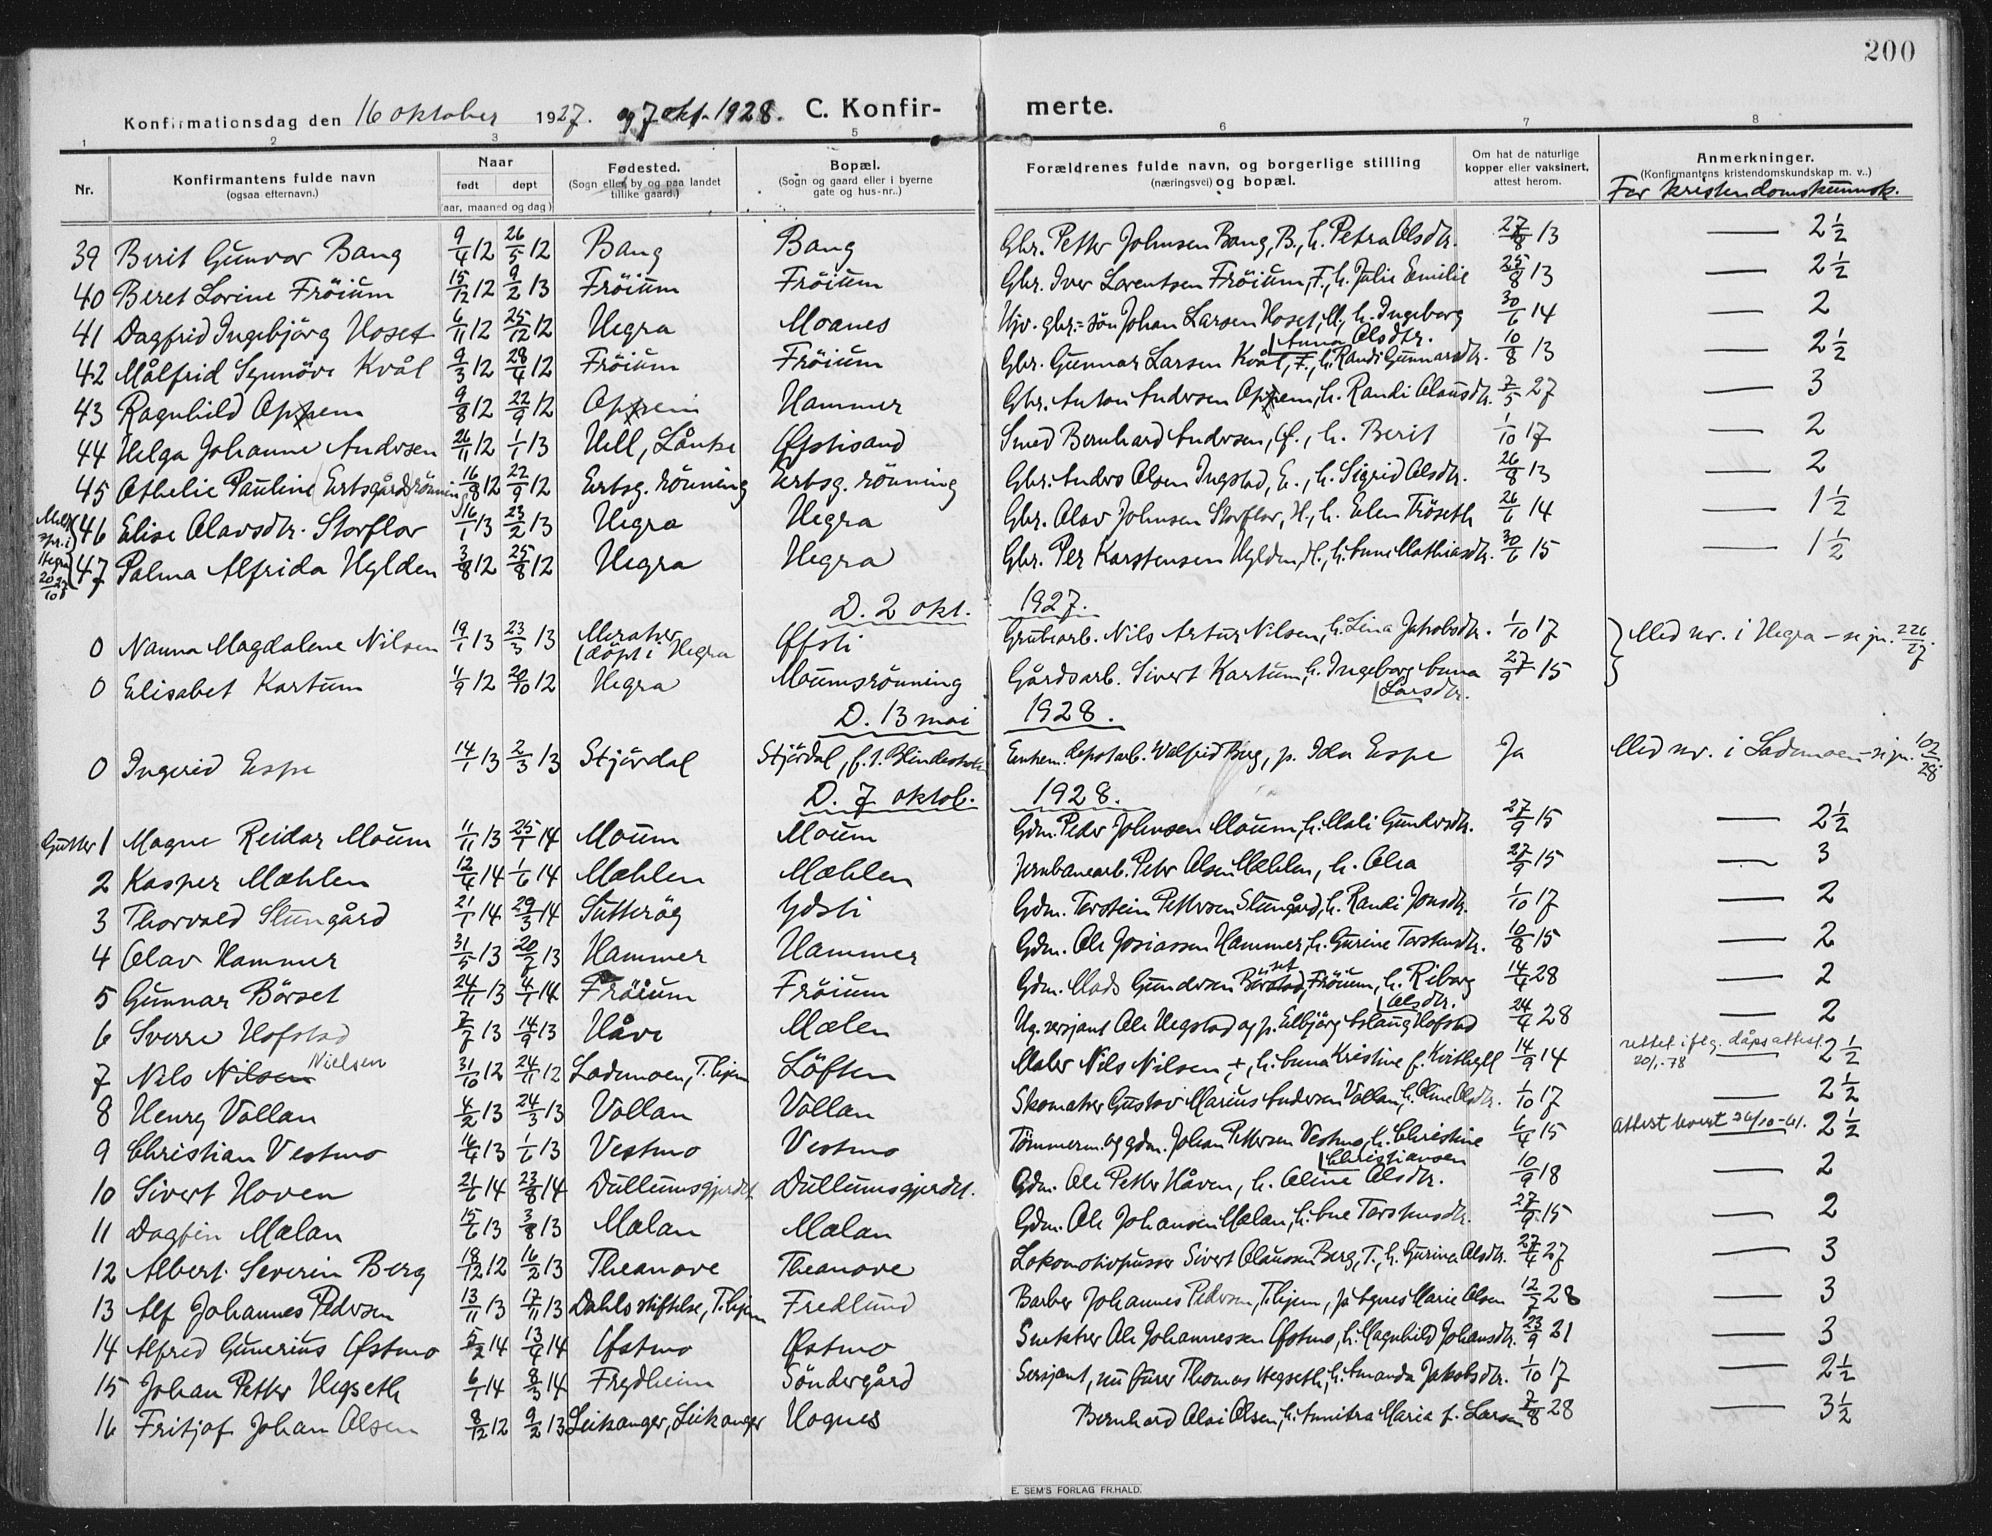 200
Konfirmationsdag den 16 oktober 1927. og 7 okt. 1928. C. Konfir- merte.
1 2 3 5 6 7 8
Nr. Konfirmantens fulde navn (ogsaa efternavn.) Naar født døpt (aar, maaned og dag) Fødested. (Sogn eller by og paa landet tillike gaard.) Bopæl. (Sogn og gaard eller i byerne gate og hus-nr.) Forældrenes fulde navn, og borgerlige stilling (næringsvei) og bopæl. Om hat de naturlige kopper eller vaksinert, attest herom. Anmerkninger. (Konfirmantens kristendomskundskap m. v.)
For kristendomskunnsk.
39 Berit Gunvor Bang 9/4 12 26/5 12 Bang Bang Gbr. Petter Johnsen Bang, B., h. Petra Olsdtr. 27/8 13 — 2 1/2
40 Beret Lorine Fröium 15/12 12 9/2 13 Fröium Fröium Gbr. Iver Lorentsen Fröium, F., h. Julie Emilie 25/8 13 — 2 1/2
41 Dagfrid Ingebjörg Hoset 6/11 12 25/12 12 Hegra Moanes Hjv. gbr.-sön Johan Larsen Hoset, M., h. Ingeborg Anna Olsdtr. 30/6 14 — 2
42 Målfrid Synnöve Kvål 9/3 12 28/4 12 Fröium Fröium Gbr. Gunnar Larsen Kvål, F., h. Randi Gunnarsdtr. 10/8 13 — 2 1/2
43 Ragnhild Opxem 9/8 12 22/9 12 Opxem Hammer Gbr. Anton Andersen Opxem, h. Randi Olausdtr. 2/5 27 — 3
44 Helga Johanne Andersen 26/11 12 1/1 13 Hell, Lånke Öfstisand Smed Bernhard Andersen, Öf., h. Berit 1/10 17 — 2
45 Othelie Pauline Ertsgårdrönning 16/8 12 22/9 12 Ertsg. rönning Ertsg. rönning Gbr. Anders Olsen Ingstad, E., h. Sigrid Olsdtr. 26/8 13 — 2
46 Elise Olavsdtr. Storflor 16/1 13 23/2 13 Hegra Hegra Gbr. Olav Johnsen Storflor, H., h. Elen Tröseth 26/6 14 — 1 1/2
Hegra 20/10 27
47 Palma Alfrida Hylden 3/8 12 25/8 12 Hegra Hegra Gbr. Per Karstensen Hylden, H., h. Anne Mathiasdtr. 30/6 15 — 1 1/2
D. 2 okt. 1927.
0 Nanna Magdalene Nilsen 19/1 13 23/3 13 Meraker (döpt i Hegra Öfsti Grubearb. Nils Artur Nilsen, h. Lina Jakobsdtr. 1/10 17 Med nr. i Hegra – se jn. 226/27
0 Elisabet Kartum 4/9 12 20/10 12 Hegra Moumsrönning Gårdsarb. Sivert Kartum, h. Ingeborg Anna Larsdtr. 27/9 15
D. 13 mai 1928.
0 Ingerid Espe 14/1 13 2/3 13 Stjördal Stjördal, f. t. Blindeskolen Enkem. depotarb. Walfrid Berg, p. Ida Espe Ja Med nr. i Lademoen – se jn. 102/28
D. 7 oktob. 1928.
Gutter 1 Magne Reidar Moum 1/11 13 25/1 14 Moum Moum Gdm. Peder Johnsen Moum, h. Mali Gundersdtr. 27/9 15 — 2 1/2
2 Kasper Mæhlen 12/4 14 1/6 14 Mæhlen Mæhlen Jernbanearb. Peter Olsen Mæhlen, h. Olea 27/9 15 — 3
3 Thorvald Stungård 21/1 14 29/3 14 Sutterög Ydsti Gdm. Torstein Pettersen Stungård, h. Randi Jonsdtr. 1/10 17 — 2
4 Olav Hammer 31/5 13 20/7 13 Hammer Hammer Gdm. Ole Josiassen Hammer, h. Gurine Torstensdtr. 10/8 15 — 2
5 Gunnar Börset 24/11 13 4/1 14 Fröium Fröium Gdm. Mads Gundersen Börset, Fröium, h. Riborg Olsdtr. 14/4 28 — 2
6 Sverre Hofstad 2/7 13 14/9 13 Håve Mælen Ug. sersjant Ole Hegstad og p. Elbjörg Aslaug Hofstad 24/4 28 — 2
7 Nils Nilsen Nielsen 31/10 12 24/11 12 Lademoen, T.hjem Löften Maler Nils Nilsen, +, h. Anna Kristine f. Kvithyll 14/9 14 rettet iflg. dåpsattest 20/1-78 — 2 1/2
8 Henry Vollan 4/2 13 24/3 13 Vollan Vollan Skomaker Gustav Marius Andersen Vollan, h. Oline Olsdtr. 1/10 17 — 2 1/2
9 Christian Vestmo 16/4 13 1/6 13 Vestmo Vestmo Tömmerm. og gdm. Johan Pettersen Vestmo, h. Christine Christiansen 6/4 15 Attest levert 26/10-41. 2 1/2
10 Sivert Hoven 21/6 14 23/8 14 Dullumsgjerdet Dullumsgjerdet. Gdm. Ole Petter Håven, h. Oline Olsdtr. 10/9 18 — 2
11 Dagfin Mælan 15/6 13 3/8 13 Mælan Mælan Gdm. Ole Johansen Mælan, h. Ane Torstensdtr. 27/9 15 — 2
12 Albert Severin Berg 18/12 12 16/2 13 Theanove Theanove Lokomotivpusser Sivert Olaussen Berg, T., h. Gurina Olsdtr. 27/4 27 — 3
13 Alf Johannes Pedersen 13/11 13 17/11 13 Dahls stiftelse, T.hjem Fredlund Barber Johannes Pedersen, T.hjem, p. Agnes Marie Olsen 12/7 28 — 3
14 Alfred Gunerius Östmo 5/2 14 13/4 14 Östmo Östmo Snekker Ole Johannessen Östmo, h. Magnhild Johansdtr. 23/9 21 — 3
15 Johan Petter Hegseth 6/1 14 8/3 14 Frydheim Söndergård Sersjant, nu furer Thomas Hegseth, h. Amanda Jakobsdtr. 1/10 17 — 2 1/2
16 Fritjof Johan Olsen 8/12 12 9/2 13 Leikanger, Leikanger Hognes Bernhard Olai Olsen, h. Anna Maria f. Larsen 2/8 28 — 3 1/2
E. SEM'S FORLAG FR.HALD.